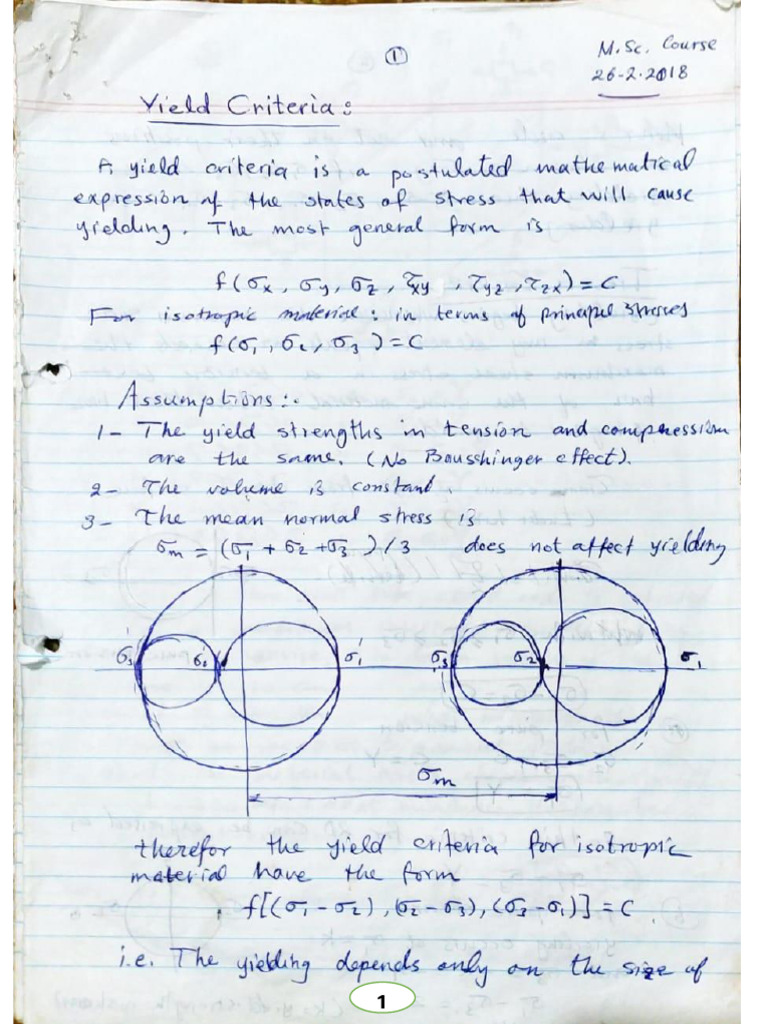 ①
M.Sc. Course
26-2-2018
Yield Criteria:
A yield criteria is a postulated mathematical
expression of the states of stress that will cause
yielding. The most general form is
f(σx, σy, σz, τxy, τyz, τzx) = C
For isotropic material: in terms of principal stresses
f(σ1, σ2, σ3) = C
Assumptions:-
1- The yield strengths in tension and compression
are the same. (No Bausshinger effect).
2- The volume is constant.
3- The mean normal stress is
σm = (σ1 + σ2 + σ3)/3 does not affect yielding
σ3' σ2' σ1' σ3 σ2 σ1
σm
therefor the yield criteria for isotropic
material have the form
f[(σ1 - σ2), (σ2 - σ3), (σ3 - σ1)] = C.
i.e. The yielding depends only on the size of
1